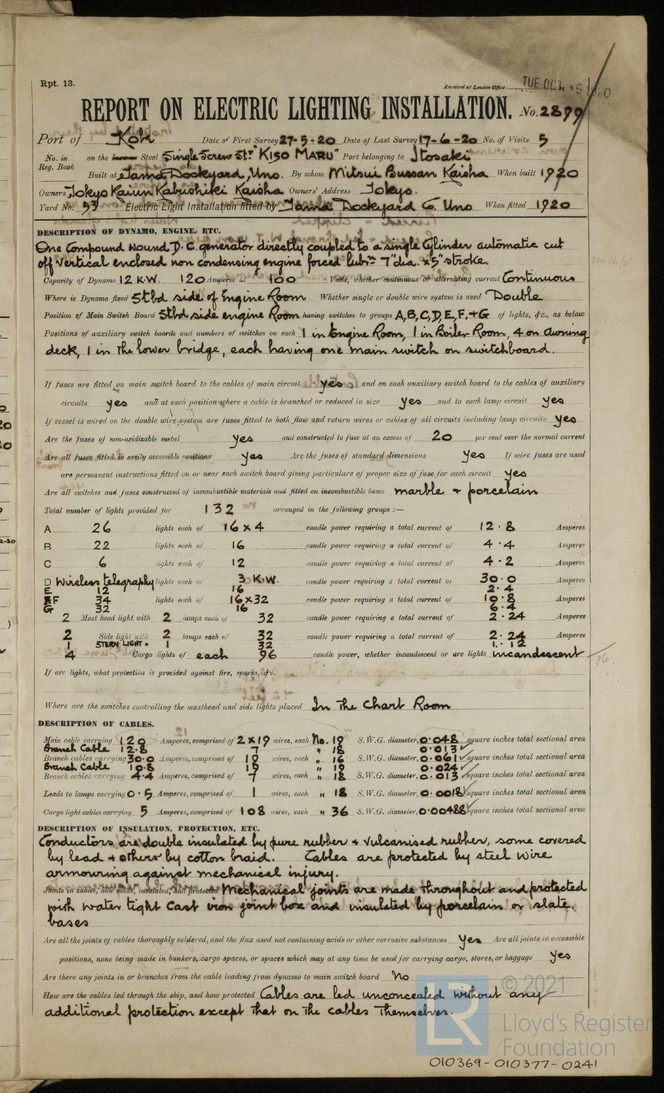 Rpt. 13.
Received at London Office
TUE OCT. 5
REPORT ON ELECTRIC LIGHTING INSTALLATION. No. 2899
Port of Kobe Date of First Survey 27-5-20 Date of Last Survey 17-6-20 No. of Visits 5
No. in Reg. Book on the Steel Single Screw Str "KISO MARU" Port belonging to Itosaki
Built at Tama Dockyard, Uno. By whom Mitsui Bussan Kaisha When built 1920
Owners Tokyo Kaiun Kabushiki Kaisha Owners' Address Tokyo.
Yard No. 53 Electric Light Installation fitted by Tama Dockyard Co Uno When fitted 1920
DESCRIPTION OF DYNAMO, ENGINE, ETC.
One Compound Wound D.C. generator directly coupled to a single Cylinder automatic cut
off vertical enclosed non condensing engine forced lubn. 7" dia. x 5" stroke.
Capacity of Dynamo 12 K.W. 120 Amperes at 100 Volts, whether continuous or alternating current Continuous
Where is Dynamo fixed Stbd side of Engine Room Whether single or double wire system is used Double
Position of Main Switch Board Stbd side engine Room having switches to groups A, B, C, D, E, F, + G of lights, &c., as below
Positions of auxiliary switch boards and numbers of switches on each 1 in Engine Room, 1 in Boiler Room, 4 on awning
deck, 1 in the lower bridge, each having one main switch on switchboard.
If fuses are fitted on main switch board to the cables of main circuit yes and on each auxiliary switch board to the cables of auxiliary
circuits yes and at each position where a cable is branched or reduced in size yes and to each lamp circuit yes
If vessel is wired on the double wire system are fuses fitted to both flow and return wires or cables of all circuits including lamp circuits yes
Are the fuses of non-oxidizable metal yes and constructed to fuse at an excess of 20 per cent over the normal current
Are all fuses fitted in easily accessible positions yes Are the fuses of standard dimensions yes If wire fuses are used
are permanent instructions fitted on or near each switch board giving particulars of proper size of fuse for each circuit yes
Are all switches and fuses constructed of incombustible materials and fitted on incombustible bases marble + porcelain
Total number of lights provided for 132 arranged in the following groups :—
A 26 lights each of 16 x 4 candle power requiring a total current of 12.8 Amperes
B 22 lights each of 16 candle power requiring a total current of 4.4 Amperes
C 6 lights each of 12 candle power requiring a total current of 4.2 Amperes
D Wireless telegraphy lights each of 3 K.W. candle power requiring a total current of 30.0 Amperes
E 12 16 2.4
F 34 lights each of 16 x 32 candle power requiring a total current of 10.8 Amperes
G 32 16 6.4
2 Mast head light with 2 lamps each of 32 candle power requiring a total current of 2.24 Amperes
2 Side light with 2 lamps each of 32 candle power requiring a total current of 2.24 Amperes
1 STERN LIGHT " 1 32 1.12
4 Cargo lights of each 96 candle power, whether incandescent or arc lights incandescent
If arc lights, what protection is provided against fire, sparks, &c.
Where are the switches controlling the masthead and side lights placed In the Chart Room
DESCRIPTION OF CABLES.
Main cable carrying 120 Amperes, comprised of 2 x 19 wires, each No. 19 S.W.G. diameter, 0.048 square inches total sectional area
Branch Cable 12.8 7 " 18 0.013
Branch cables carrying 30.0 Amperes, comprised of 19 wires, each " 16 S.W.G. diameter, 0.061 square inches total sectional area
Branch Cable 10.8 19 " 19 0.024
Branch cables carrying 4.4 Amperes, comprised of 7 wires, each " 18 S.W.G. diameter, 0.013 square inches total sectional area
Leads to lamps carrying 0.5 Amperes, comprised of 1 wires, each " 18 S.W.G. diameter, 0.0018 square inches total sectional area
Cargo light cables carrying 5 Amperes, comprised of 108 wires, each " 36 S.W.G. diameter, 0.00488 square inches total sectional area
DESCRIPTION OF INSULATION, PROTECTION, ETC.
Conductors are double insulated by pure rubber + vulcanised rubber, some covered
by lead + others by cotton braid. Cables are protected by steel wire
armouring against mechanical injury.
Joints in cables, how made, insulated, and protected Mechanical joints are made throughout and protected
with water tight cast iron joint box and insulated by porcelain or slate
bases
Are all the joints of cables thoroughly soldered, and the flux used not containing acids or other corrosive substances yes Are all joints in accessible
positions, none being made in bunkers, cargo spaces, or spaces which may at any time be used for carrying cargo, stores, or baggage yes
Are there any joints in or branches from the cable leading from dynamo to main switch board No
How are the cables led through the ship, and how protected Cables are led unconcealed without any
additional protection except that on the cables themselves.
© 2021
Lloyd's Register
Foundation
010369-010377-0241